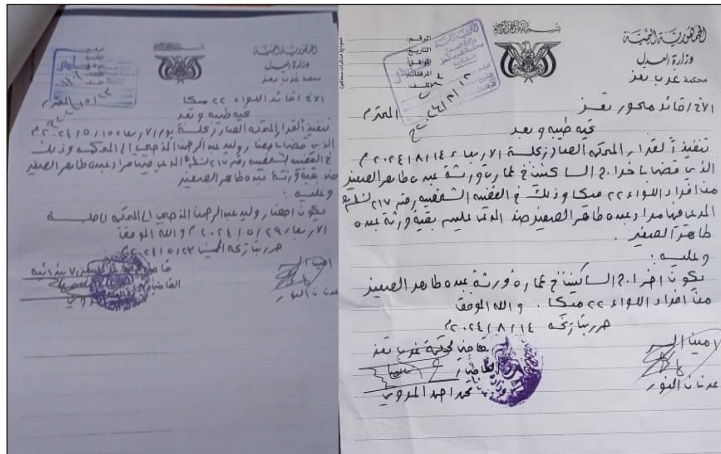 الجمهورية اليمنية
وزارة العدل
محكمة غرب تعز
الرقم:
التاريخ:
الأخ/ قائد محور تعز
المحترم
تحية طيبة وبعد
تنفيذاً لقرار المحكمة الصادر بجلسة الأربعاء ٢٠٢٤/٨/١٤م
الذي قضى بإخراج الساكنين في عمارة ورثة عبده طاهر الصغير
من أفراد اللواء ٢٢ ميكا وذلك في القضية الشخصية رقم ٢١٧ لسنة
المدعي فيها مراد عبده طاهر الصغير ضد المدعى عليهم بقية ورثة عبده
طاهر الصغير.
وعليه:
يكون إخراج الساكنين في عمارة ورثة عبده طاهر الصغير
من أفراد اللواء ٢٢ ميكا. والله الموفق
حرر بتاريخه ٢٠٢٤/٨/١٤م
أمين السر
قاضي محكمة غرب تعز
القاضي/
عدنان النور
الجمهورية اليمنية
وزارة العدل
محكمة غرب تعز
الأخ/ قائد اللواء ٢٢ ميكا
المحترم
تحية طيبة وبعد
تنفيذاً لقرار المحكمة الصادر بجلسة يوم الأربعاء ٢٠٢٤/٥/١٥م
الذي قضى بإحضار وليد عبدالرحمن الذبحي إلى المحكمة وذلك
في القضية الشخصية رقم ٢١٧ المدعي فيها مراد عبده طاهر الصغير
ضد بقية ورثة عبده طاهر الصغير
وعليه:
يكون إحضار وليد عبدالرحمن الذبحي إلى المحكمة بجلسة
الأربعاء ٢٠٢٤/٥/٢٩م والله الموفق
حرر بتاريخه الخميس ٢٠٢٤/٥/٢٣م
أمين السر
القاضي/
عدنان النور